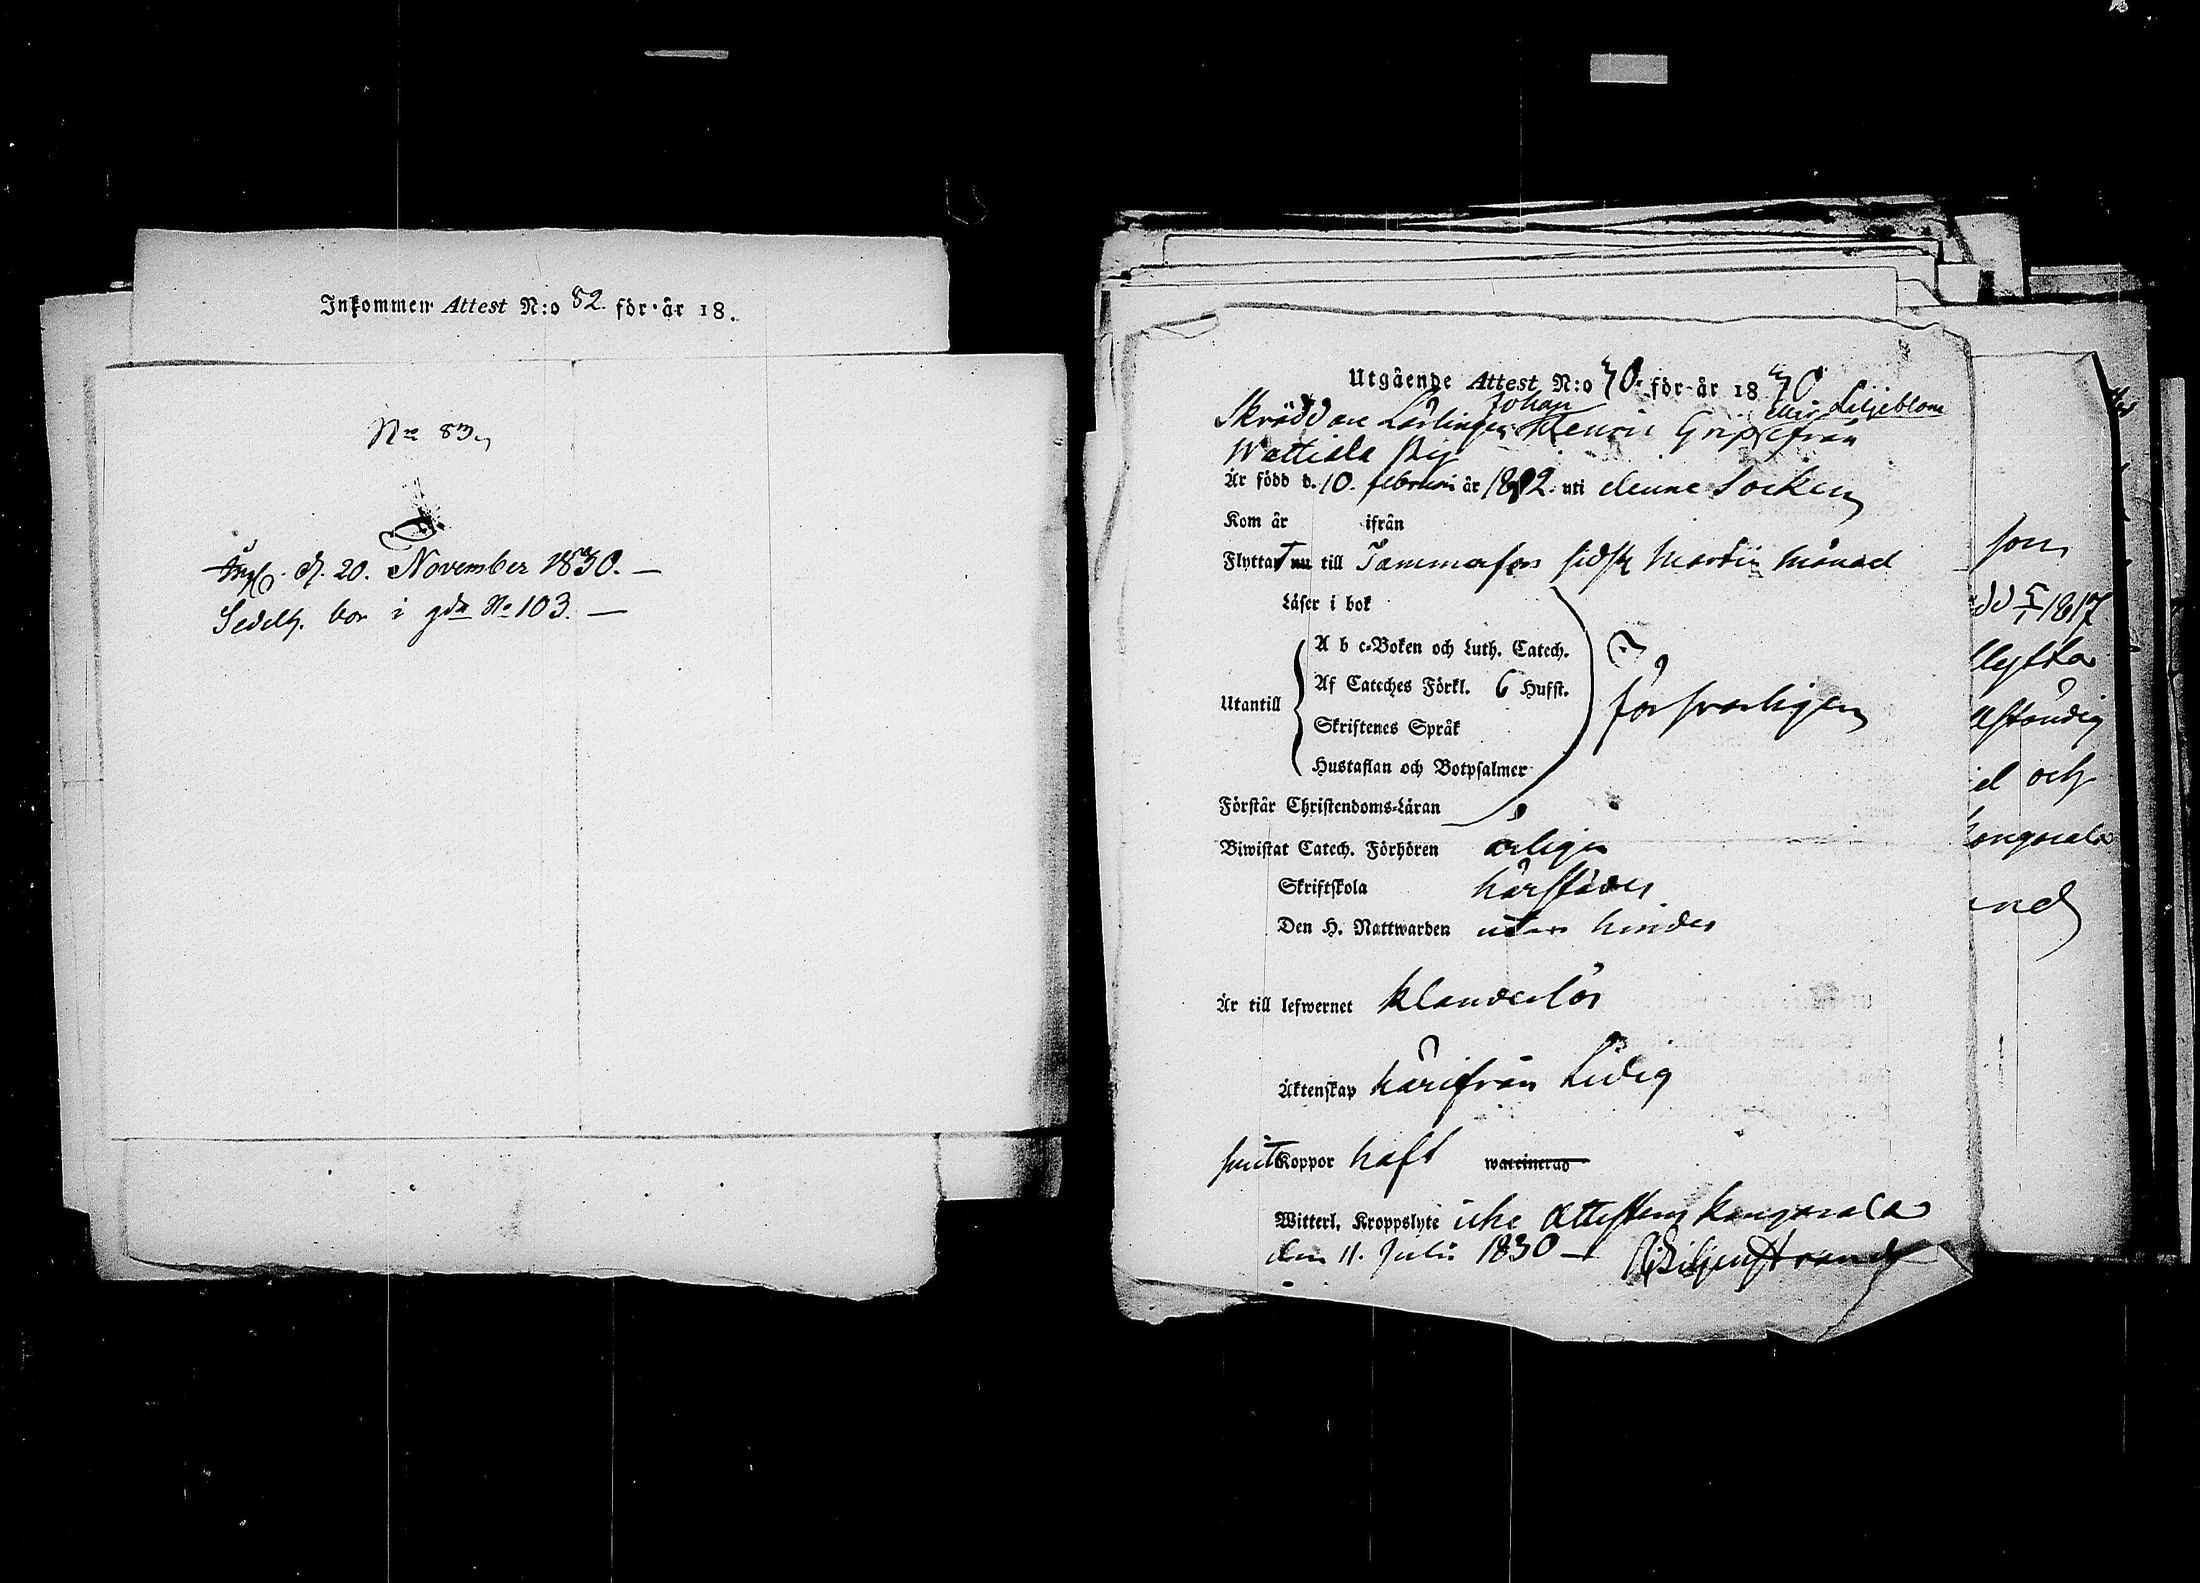 Inkommen Attest N:o 82. för år 18.
No 83,
d. 20. November 1830. —
Sedelh. bor i gdn No 103. —
Utgående Attest N:o 30. för år 1830
Skräddare Lärlingen Johan Henric Grip eller Liljeblom ifrån
Wattiala By
Är född d. 10. februari år 1812. uti denne Socken
Kom år ifrån
Flyttat nu till Tammerfors sidstl. Martii månad
Läser i bok
A b c-Boken och Luth. Catech.
Af Cateches Förkl. 6 Hufst.
Utantill
försvarligen
Skriftenes Språk
Hustaflan och Botpsalmer
Förstår Christendoms-Läran
Biwistat Catech. Förhören årligen
Skriftskola härstädes
Den H. Nattwarden utan hinder
Är till lefwernet klanderlös
Äktenskap härifrån Ledig
haft Koppor waccinerad
Witterl. Kroppslyte icke Attesterar Kangasala
den 11. Julii 1830 — Liljenstrand
son
dd 5/1 1817
flytta
ständig
el och
Kangasala
and